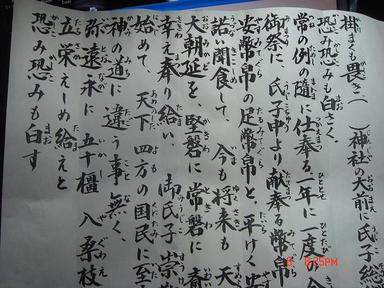 掛まくも畏き(　)神社の大前に氏子総
恐み恐みも白さく、
常の例の随に仕奉る、年に一度の今
御祭に、氏子中より献奉る幣帛
安幣帛の足幣帛と、平けく安
諾い聞食して、今も将来も、天
大朝廷を、堅磐に常磐に斎
幸え奉り給い、御氏子崇敬
始めて、天下四方の国民に至
神の道に違う事無く、
弥遠永に五十橿八桑枝
立栄えしめ給えと
恐み恐みも白す
8:35PM